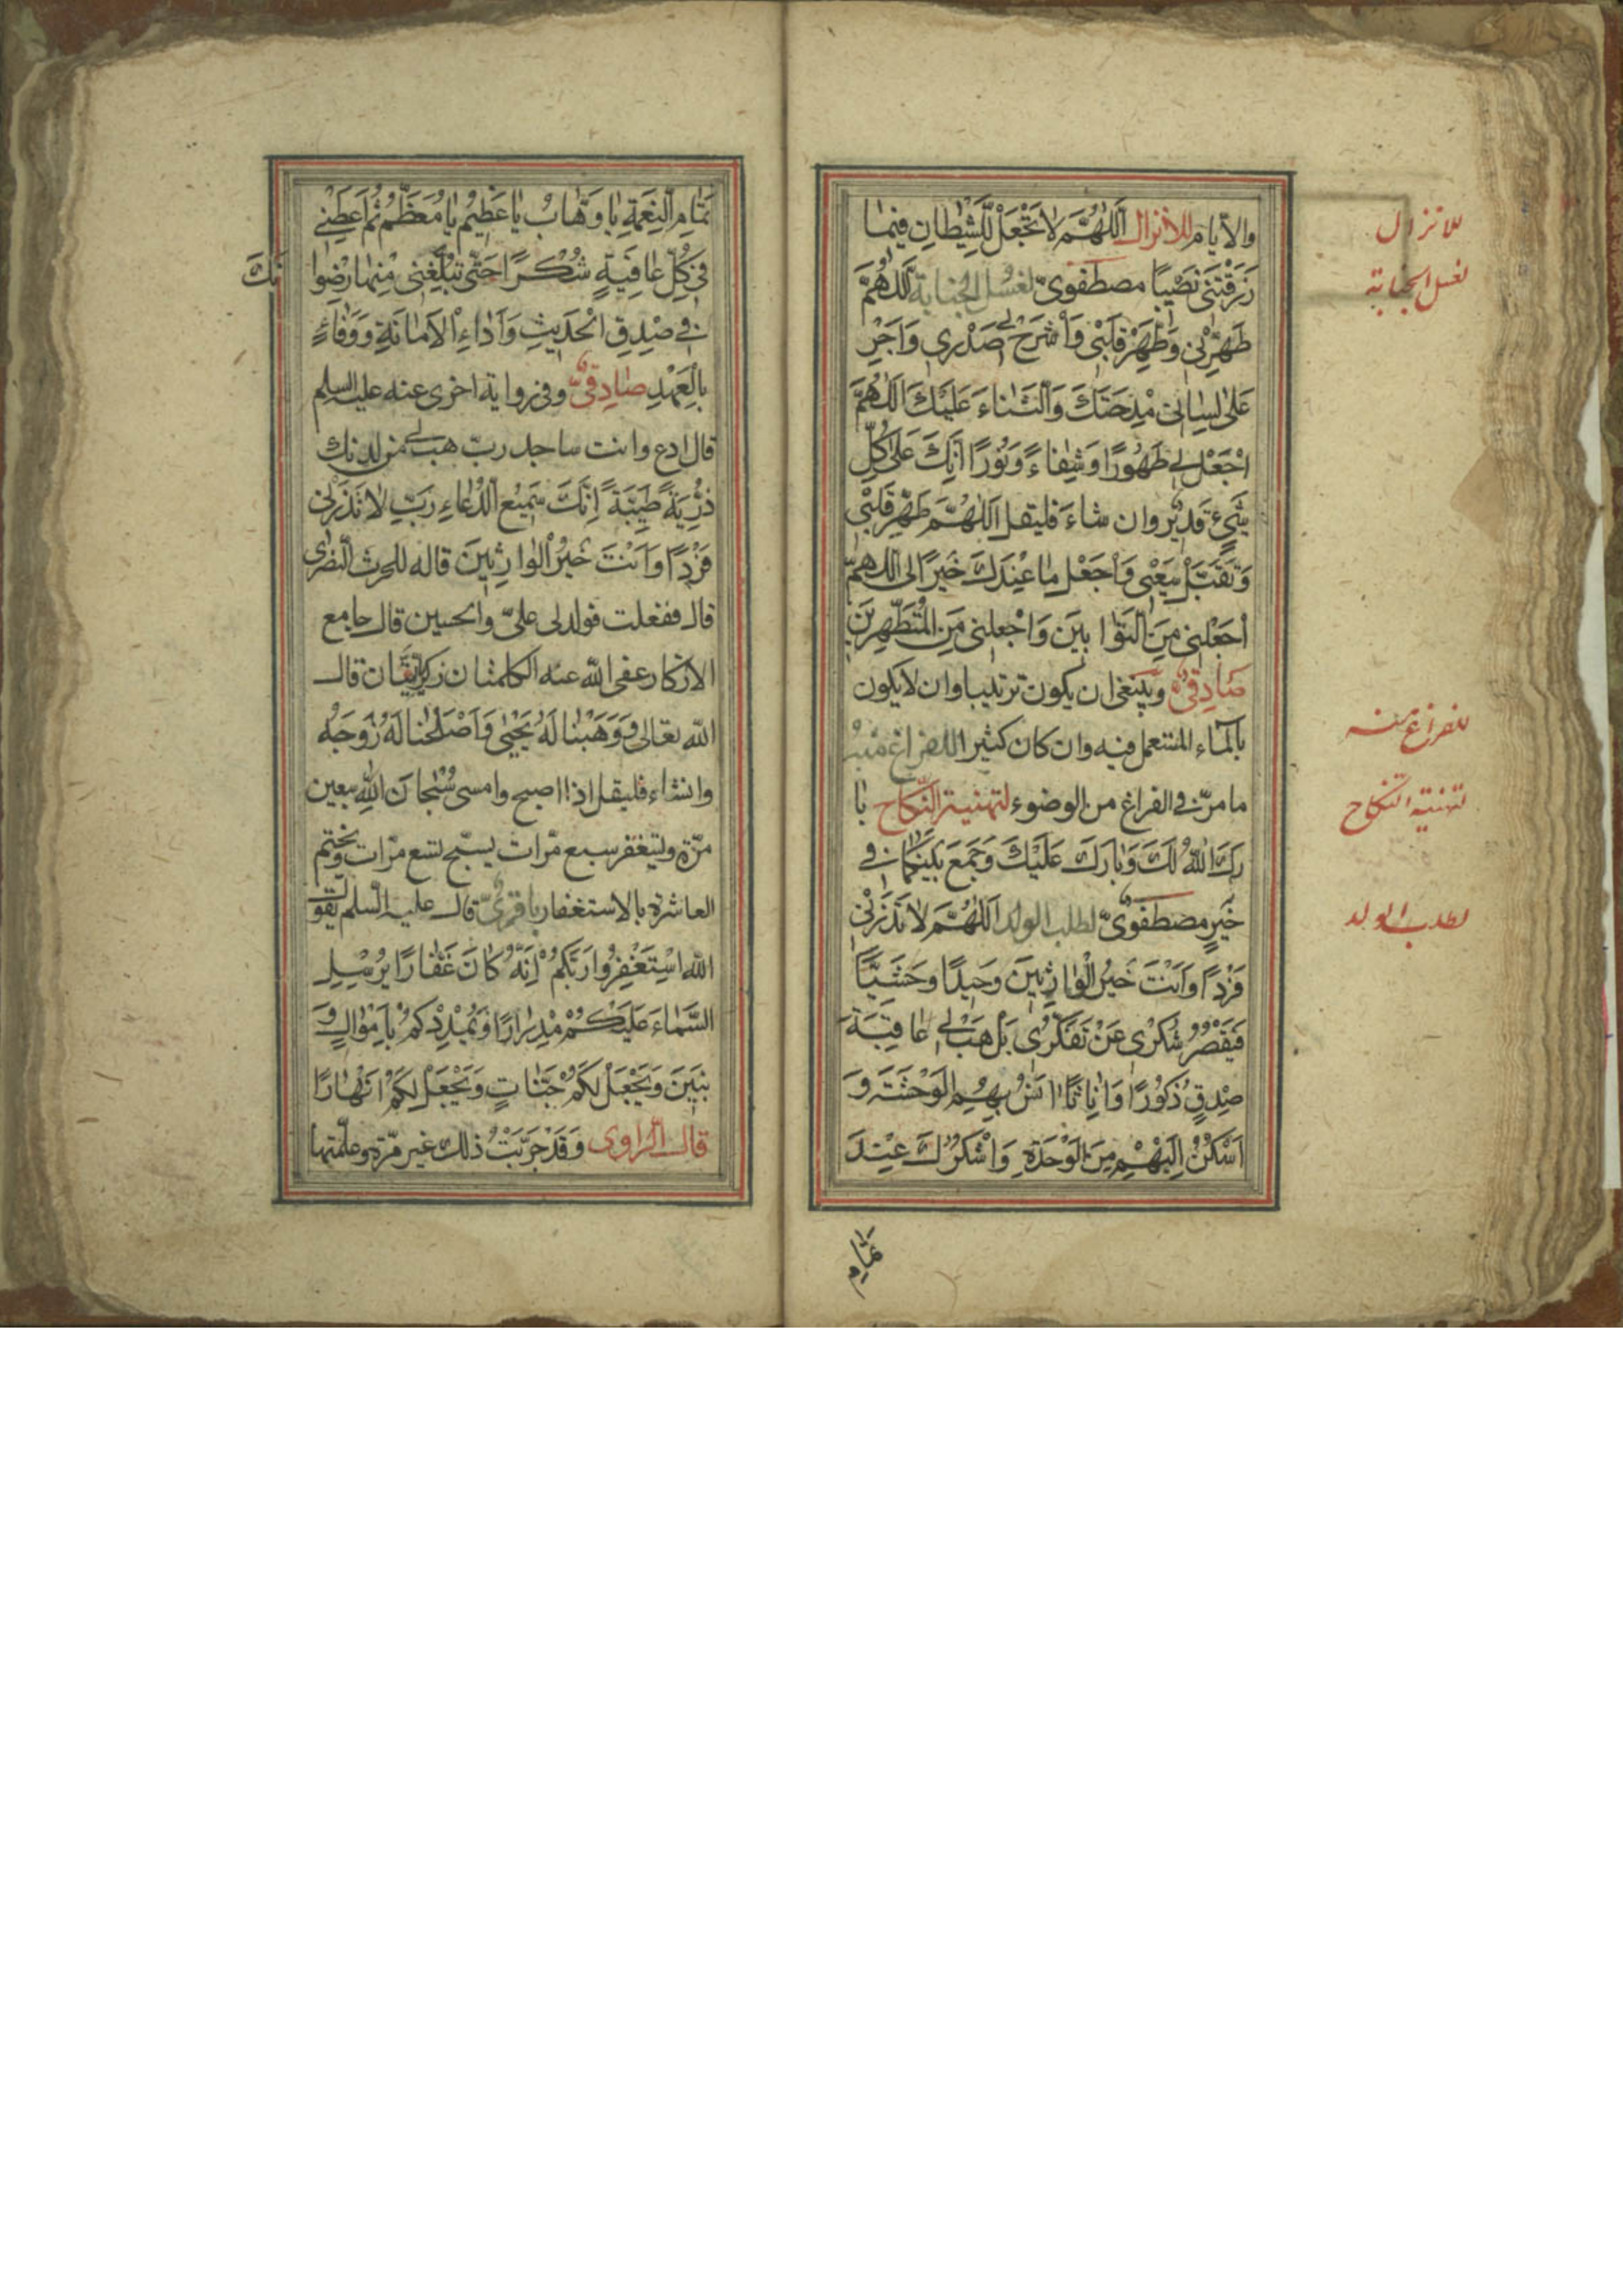 والأيام للأنزال اَللّٰهُمَّ لاٰ تَجْعَلْ لِلشَّيْطانِ فيمٰا
رَزَقْتَنى نَصْيبًا مصطفوىّ لغسل الجنابة اَللّٰهُمَّ
طَهِّرْنى وَطَهِّرْ قَلْبْى وَاْشْرَحْ لى صَدْرى وَاَجْرِ
عَلىٰ لِسٰانى مِدْحَتَكَ وَالْثَنٰاءَ عَلَيْكَ اَللّٰهُمَّ
اجْعَلْ لى طَهُورًا وَشِفٰاءً وَنُورًا اِنَّكَ عَلىٰ كُلِّ
شَىْءٍ قَديْر وان شاءَ فليقل اَللّٰهُمَّ طَهِّرْ قَلْبْى
وَتَقَبَّلْ سَعْيى وَاْجَعْل مٰا عِنْدَكَ خَيْرًا لى اللّٰهُمَّ
اجْعَلْنى مِنَ الْتَوّٰابينَ وَاجْعلنى مِنَ الْمُتَطَهِّرينَ
صٰادِقىّ وينبغى ان يكون ترتيبا وان لا يكون
بالماء المستعمل فيه وان كان كثيرا للفراغ منه
ما مرّ فى الفراغ من الوضوء لتهنية النّكاح بٰا
رَكَ اللّٰهُ لَكَ وَبٰارَكَ عَلَيْكَ وَجَمَعَ بَيْنَكُمٰا فى
خَيْرٍ مصطفوىّ لطلب الولد اَللّٰهُمَّ لاٰ تَذَرْنى
فَرْدًا وَاَنْتَ خَيْرُ الْوٰارِثينَ وَحيدًا وَحْشِيًّا
فَيَقْصُرُ شُكْرى عَنْ تَفَكُّرى بَلْ هَبْ لى عٰاقِبَةَ
صِدْقٍ ذُكُورًا وَاِنٰاثًا انَسُ بِهِمْ الْوَحْشَةِ وَ
اَسْكُنُ اِلَيْهِمْ مِنَ الْوَحْدَةِ وَاَشْكُرُكَ عِنْدَ
تمام
للانزال
لغسل الجنابة
للفراغ منه
لتهنية النكاح
لطلب الولد
تَمٰامِ الْنِعْمَةِ يٰا وَهّٰابُ يٰا عَظيْمُ يٰا مُعَظَّمُ ثُمَّ اَعْطِنى
فى كُلِّ عٰافِيَةٍ شُكْرًا حَتّٰى تُبَلِّغَنى مِنْهٰا رِضْوٰا
نَكَ
فى صِدْقِ الْحَديثِ وَاَدٰاءِ الْاَمٰانَةِ وَوَفٰاءً
بِالْعَهْدِ صٰادِقىّ وفى رواية اخرى عنه عليه السلم
قال ادع وانت ساجد ربّ هب لى من لدنك
ذُرِّيَةً طَيِّبَةً اِنَّكَ سَميعُ الدُّعٰاءِ رَبِّ لاٰ تَذَرْنى
فَرْدًا وَاَنْتَ خَيْرُ الْوٰارِثينَ قاله للحرث النصرى
قال ففعلت فولد لى علىّ والحسين قال جامع
الاذكار عفى الله عنه الكلمتان زكريّٰاتان قال
الله تعالى وَوَهَبْنٰا لَهُ يَحْيٰى وَاَصْلَحْنٰا لَهُ زَوْجَهُ
وانشاء فليقل اذا اصبح وامسى سُبْحٰانَ اللهِ سبعين
مرّة ويستغفر سبع مرّات يسبّح تسع مرّات ويختم
العاشرة بالاستغفار باقرىّ قال عليه السّلم يقول
الله اسْتَغْفِرُوا رَبَّكُمْ اِنَّهُ كٰانَ غَفّٰارًا يُرْسِلِ
السَّمٰاءَ عَلَيْكُمْ مِدْرٰارًا وَيُمْدِدْكُمْ بِاَمْوٰالٍ وَ
بَنينَ وَيَجْعَلْ لَكُمْ جَنّٰاتٍ وَيَجْعَلْ لَكُمْ اَنْهٰارًا
قال الرّاوى وَقَدْ جَرَّبَتْ ذلك غير مرّة وعلّمتها